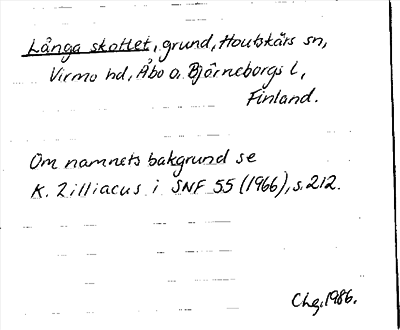 Långa skottet, grund, Houtskärs sn,
Virmo hd, Åbo o. Björneborgs l,
Finland.
Om namnets bakgrund se
K. Zilliacus i SNF 55 (1966), s. 212.
Chg. 1986.